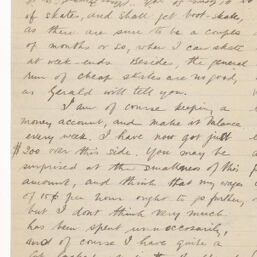 of skates, and shall get boot-skates,
as there are sure to be a couple
of months or so, when I can skate
at week-ends. Besides, the general
run of cheap skates are no good,
as Gerald will tell you.
I am of course keeping a
money account, and make it balance
every week. I have now got just
$200 over this side. You may be
surprised at the smallness of this
amount, and think that my wages
of 15¢ per hour ought to go further,
but I don't think very much
has been spent unnecessarily,
and of course I have quite a